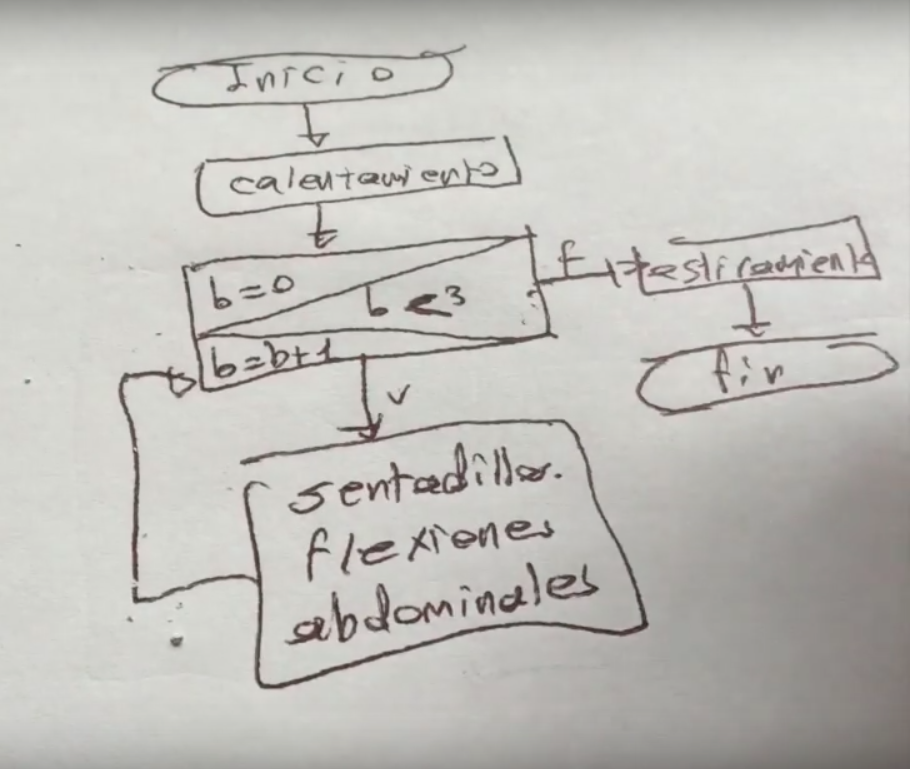 Inicio
calentamiento
b=0
b<3
b=b+1
f
estiramiento
fin
v
sentadillas.
flexiones
abdominales